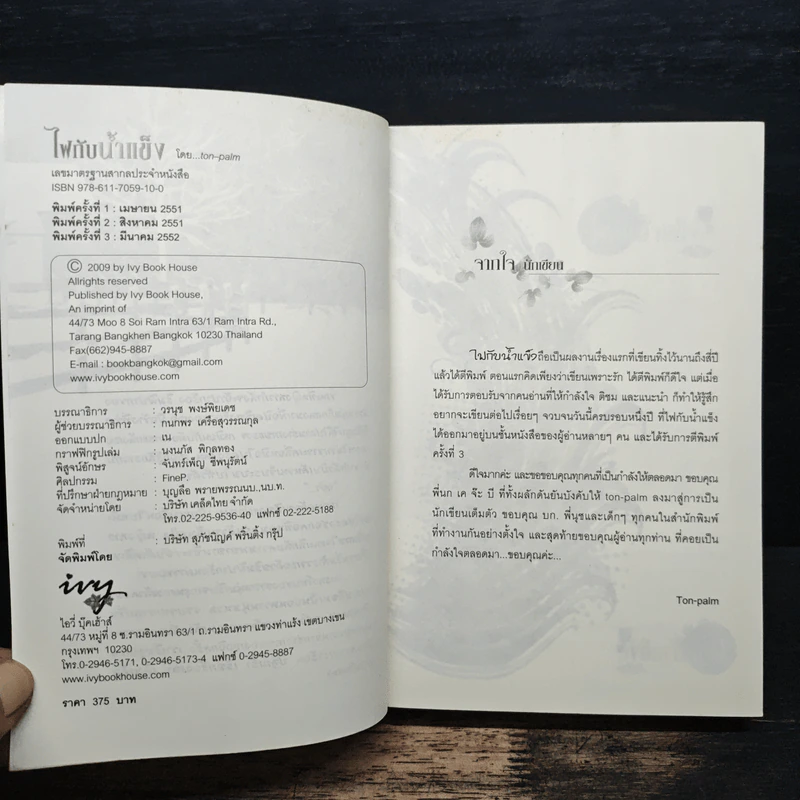 ไฟกับน้ำแข็ง โดย...ton-palm
เลขมาตรฐานสากลประจำหนังสือ
ISBN 978-611-7059-10-0
พิมพ์ครั้งที่ 1 : เมษายน 2551
พิมพ์ครั้งที่ 2 : สิงหาคม 2551
พิมพ์ครั้งที่ 3 : มีนาคม 2552
© 2009 by Ivy Book House
Allrights reserved
Published by Ivy Book House,
An imprint of
44/73 Moo 8 Soi Ram Intra 63/1 Ram Intra Rd.,
Tarang Bangkhen Bangkok 10230 Thailand
Fax(662)945-8887
E-mail : bookbangkok@gmail.com
www.ivybookhouse.com
บรรณาธิการ : วรนุช พงษ์พิยเดช
ผู้ช่วยบรรณาธิการ : กนกพร เครือสุวรรณกุล
ออกแบบปก : เน
กราฟฟิกรูปเล่ม : นงนภัส พิกุลทอง
พิสูจน์อักษร : จันทร์เพ็ญ ชีพนุรัตน์
ศิลปกรรม : FineP.
ที่ปรึกษาฝ่ายกฎหมาย : บุญลือ พรายพรรณนบ.,นบ.ท.
จัดจำหน่ายโดย : บริษัท เคล็ดไทย จำกัด
โทร.02-225-9536-40 แฟกซ์ 02-222-5188
พิมพ์ที่ : บริษัท สุภัชนิญค์ พริ้นติ้ง กรุ๊ป
จัดพิมพ์โดย
ivy
ไอวี่ บุ๊คเฮ้าส์
44/73 หมู่ที่ 8 ซ.รามอินทรา 63/1 ถ.รามอินทรา แขวงท่าแร้ง เขตบางเขน
กรุงเทพฯ 10230
โทร.0-2946-5171, 0-2946-5173-4 แฟกซ์ 0-2945-8887
www.ivybookhouse.com
ราคา 375 บาท
จากใจ นักเขียน
ไฟกับน้ำแข็งถือเป็นผลงานเรื่องแรกที่เขียนทิ้งไว้นานถึงสี่ปี
แล้วได้ตีพิมพ์ ตอนแรกคิดเพียงว่าเขียนเพราะรัก ได้ตีพิมพ์ก็ดีใจ แต่เมื่อ
ได้รับการตอบรับจากคนอ่านที่ให้กำลังใจ ติชม และแนะนำ ก็ทำให้รู้สึก
อยากจะเขียนต่อไปเรื่อยๆ จวบจนวันนี้ครบรอบหนึ่งปี ที่ไฟกับน้ำแข็ง
ได้ออกมาอยู่บนชั้นหนังสือของผู้อ่านหลายๆ คน และได้รับการตีพิมพ์
ครั้งที่ 3
ดีใจมากค่ะ และขอขอบคุณทุกคนที่เป็นกำลังให้ตลอดมา ขอบคุณ
พี่นก เค จ๊ะ บี ที่ทั้งผลักดันยันบังคับให้ ton-palm ลงมาสู่การเป็น
นักเขียนเต็มตัว ขอบคุณ บก. พี่นุชและเด็กๆ ทุกคนในสำนักพิมพ์
ที่ทำงานกันอย่างตั้งใจ และสุดท้ายขอบคุณผู้อ่านทุกท่าน ที่คอยเป็น
กำลังใจตลอดมา...ขอบคุณค่ะ...
Ton-palm